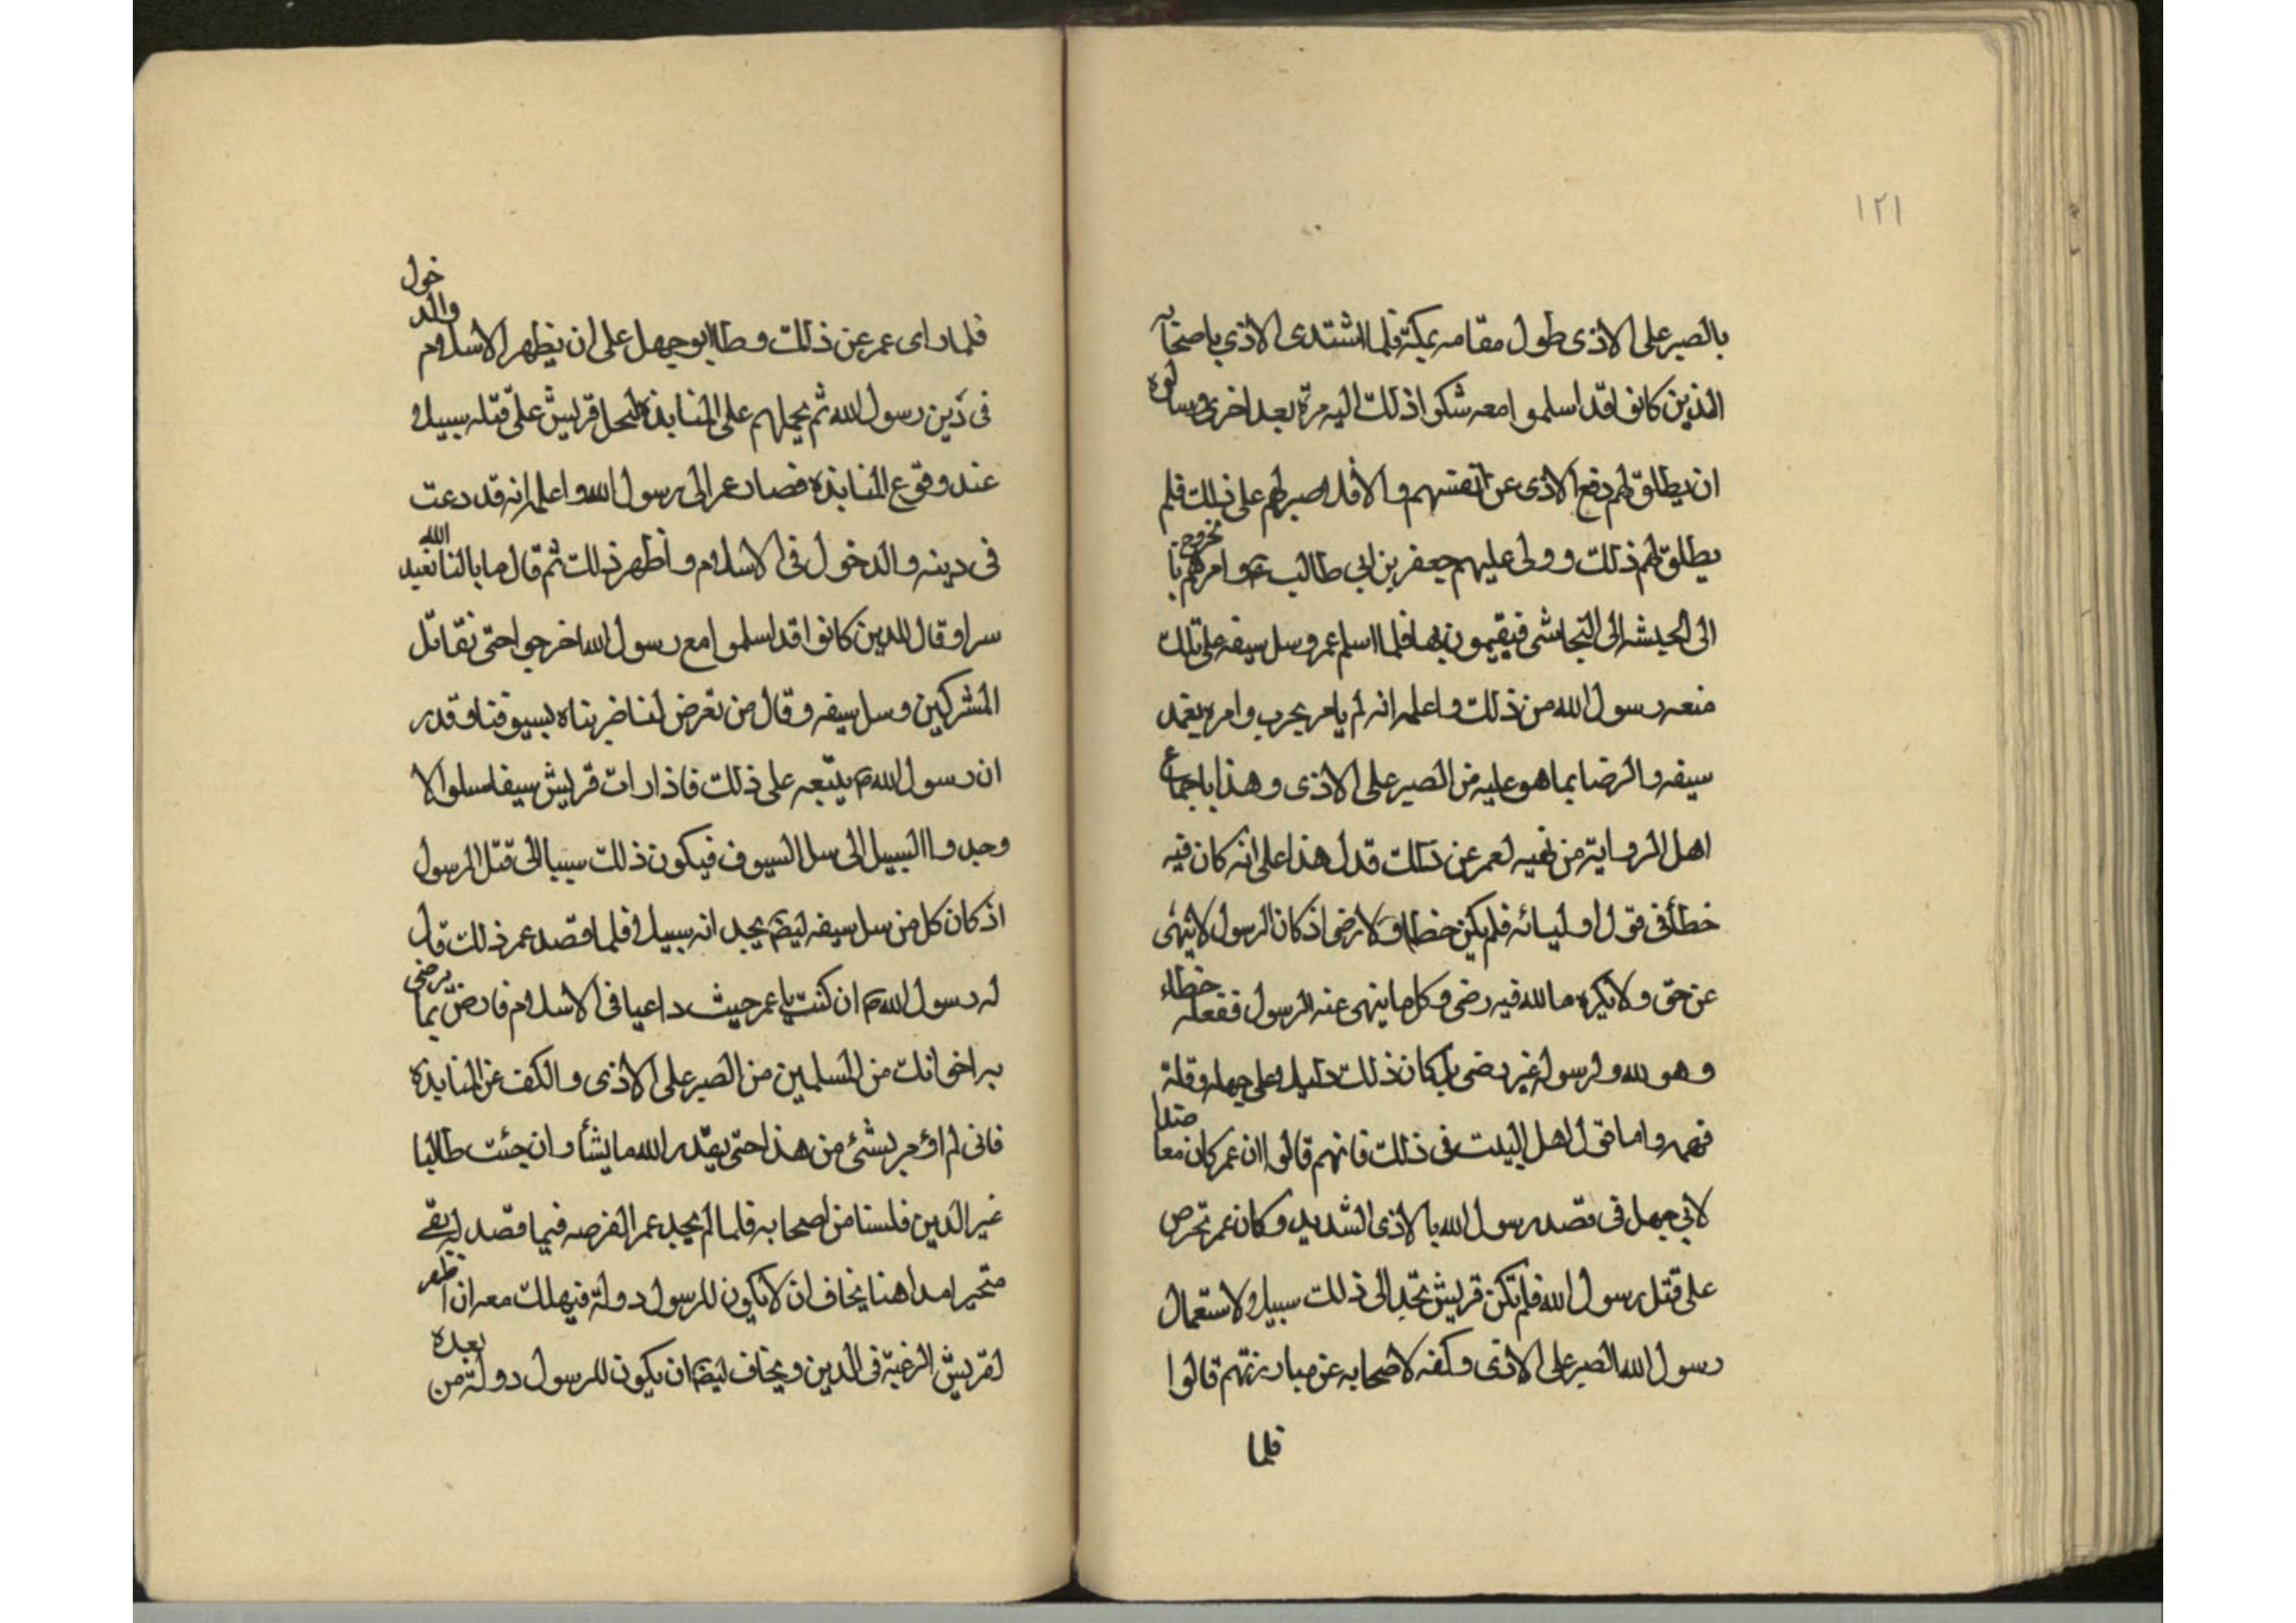 ١٢١
بالصبر على الاذى طول مقامه بمكة فلما اشتدى الاذي باصحابه
الذين كانوا قد اسلموا معه شكوا ذلك اليه مرة بعد اخرى وسالوه
ان يطلق لهم دفع الاذى عن انفسهم والا فلا صبر لهم على ذلك فلم
يطلق لهم ذلك وولى عليهم جعفر بن ابي طالب وامرهم بالخروج
الى الحبشه الى النجاشى فيقيمون بها فلما اسلم عمر وسل سيفه على تلك
منعه رسول الله من ذلك واعلمه انه لم يامر بحرب وامره بغمد
سيفه والرضا بما هو عليه من الصبر على الاذى وهذا باجماع
اهل الرواية من نهيه لعمر عن ذلك فدل هذا على انه كان فيه
خطأ فى قول اوليائه فلم يكن خطاؤه لارضى اذ كان الرسول لا ينهى
عن حق ولا يكره ما لله فيه رضى وكل ما ينهى عنه الرسول ففعله خطاء
وهو لله ولرسوله غير رضى بل كان ذلك دليلا على جهله وقلة
فهمه واما قول اهل البيت فى ذلك فانهم قالوا ان عمر كان معاضدا
لابي جهل فى قصد رسول الله بالاذى الشديد وكان عمر يحرص
على قتل رسول الله فلم تكن قريش تجد الى ذلك سبيلا لاستعمال
رسول الله الصبر على الاذى وكفه لاصحابه عن مبارزتهم قالوا
فلما
فلما راى عمر عن ذلك وطا ابو جهل على ان يظهر الاسلام والدخول
فى دين رسول الله ثم يحملهم على المنابذة لتجد قريش على قتله سبيلا
عند وقوع المنابذة فصار عمر الى رسول الله واعلم انه قد رغب
فى دينه والدخول فى الاسلام واظهر ذلك ثم قال ما بالنا نعبد الله
سرا وقال للذين كانوا قد اسلموا مع رسول الله اخرجوا حتى نقاتل
المشركين وسل سيفه وقال من تعرض لنا ضربناه بسيوفنا وقدر
ان رسول الله ص يتبعه على ذلك فاذا رات قريش سيفا مسلولا
وجدوا السبيل الى سل السيوف فيكون ذلك سببا الى قتل الرسول
اذ كان كل من سل سيفه ليضم يجد انه سبيلا فلما قصد عمر ذلك قال
له رسول الله ص ان كنت يا عمر حيث داعيا فى الاسلام فارض بما يرضى
به اخوانك من المسلمين من الصبر على الاذى والكف عن المنابذة
فانى لم اؤمر بشئ من هذا حتى يقدر الله ما يشأ وان جئت طالبا
غير الدين فلسنا من اصحابه فلما لم يجد عمر الفرصه فيما قصد له بقے
متحيرا مداهنا يخاف ان لا يكون للرسول دولة فيهلك معه ان اظهر
لقريش الرغبة فى الدين ويخاف ايضا ان يكون للرسول دولة من بعده